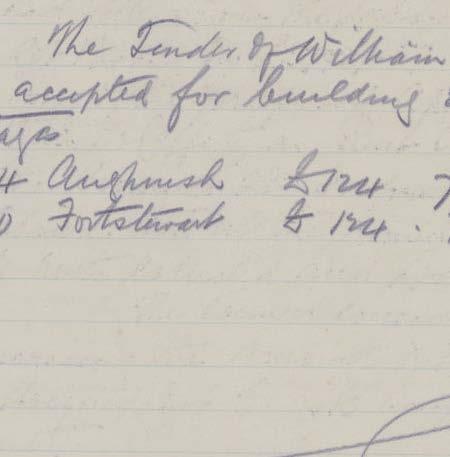 The Tender of William
accepted for building
ages
4 Aughnish £124. 7
0 Fortstewart £ 124.